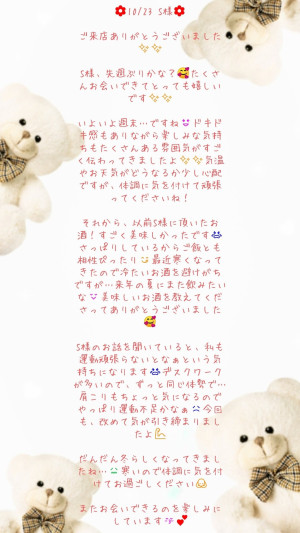 🌺10/23 S様🌺
ご来店ありがとうございました
✨✨
S様、先週ぶりかな？🥰たくさ
んお会いできてとっても嬉しい
です✨✨
いよいよ週末…ですね😈ドキド
キ感もありながら楽しみな気持
ちもたくさんある雰囲気がすご
く伝わってきましたよ✨✨気温
やお天気がどうなるか少し心配
ですが、体調に気を付けて頑張
ってくださいね！
それから、以前S様に頂いたお
酒！すごく美味しかったです
さっぱりしているからご飯とも
相性ぴったり 最近寒くなって
きたので冷たいお酒を避けがち
ですが…来年の夏にまた飲みたい
な 美味しいお酒を教えてくだ
さってありがとうございました
🥰
S様のお話を聞いていると、私も
運動頑張らないとなぁという気
持ちになります デスクワーク
が多いので、ずっと同じ体勢で…
肩こりもちょっと気になるので
やっぱり運動不足かなぁ 今回
も、改めて気が引き締まりまし
たよ💪
だんだん冬らしくなってきまし
たね… 寒いので体調に気を付
けてお過ごしください
またお会いできるのを楽しみに
しています 💕